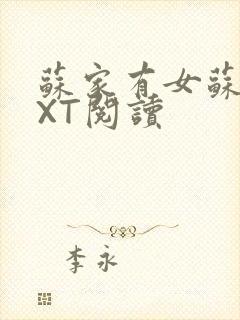 蘇家有女蘇
XT閱讀
李永